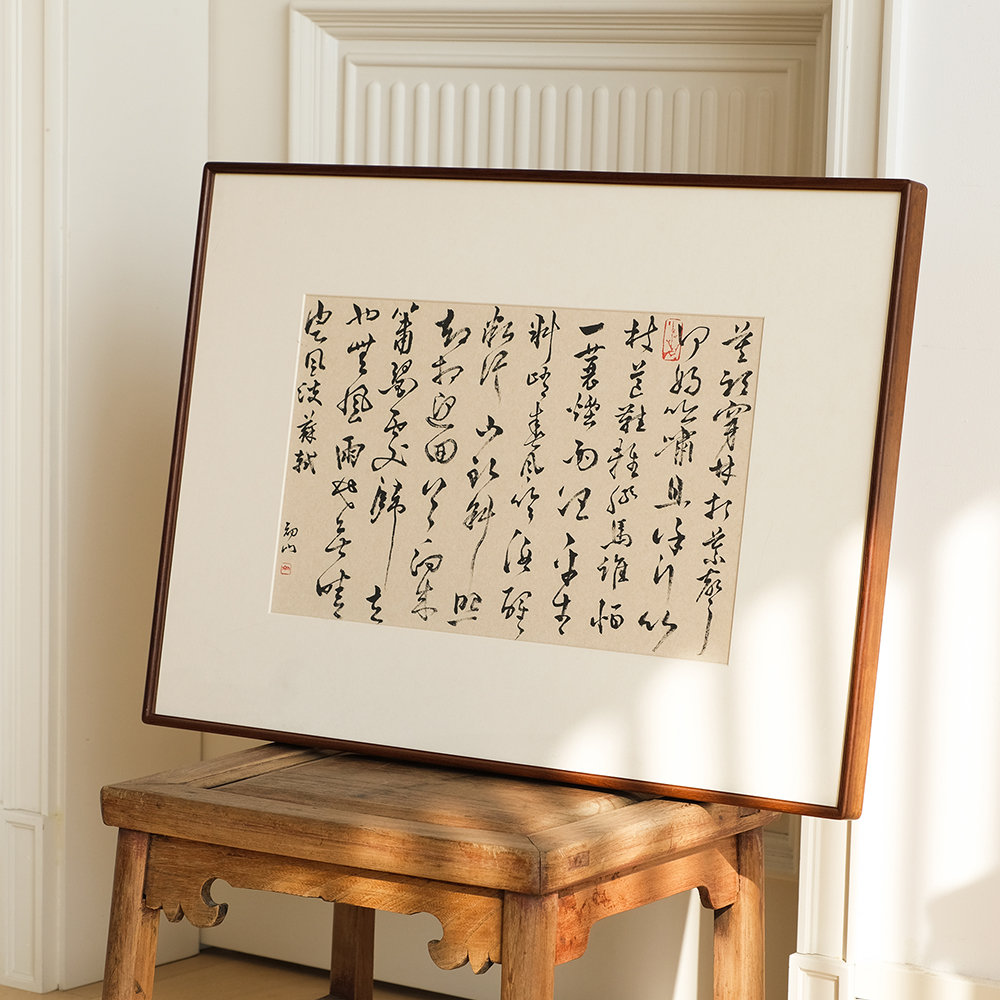 莫聽穿林打葉聲
何妨吟嘯且徐行竹
杖芒鞋輕勝馬誰怕
一蓑煙雨任平生
料峭春風吹酒醒
微冷山頭斜照
却相迎回首向來
蕭瑟處歸去
也無風雨也無晴
定風波 蘇軾